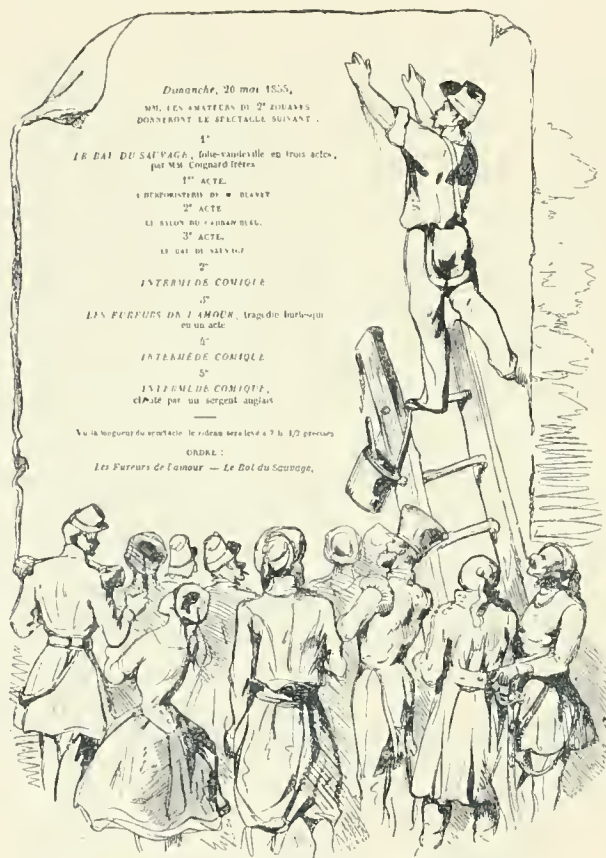 Dimanche, 20 mai 1855,
MM. LES AMATEURS DU 2e ZOUAVES
DONNERONT LE SPECTACLE SUIVANT :
1°
LE BAL DU SAUVAGE, folie-vaudeville en trois actes,
par MM Cogniard frères
1er ACTE.
DE BLANET
2e ACTE
LE SALON DU
3e ACTE.
LE BAL DU SAUVAGE
2°
INTERMÈDE COMIQUE
3°
LES FUREURS DE L'AMOUR, tragédie burlesque
en un acte
4°
INTERMÈDE COMIQUE
5°
INTERMÈDE COMIQUE,
chanté par un sergent anglais
Vu la longueur du spectacle le rideau sera levé à 7 h. 1/2 précises
ORDRE :
Les Fureurs de l'amour — Le Bal du Sauvage,